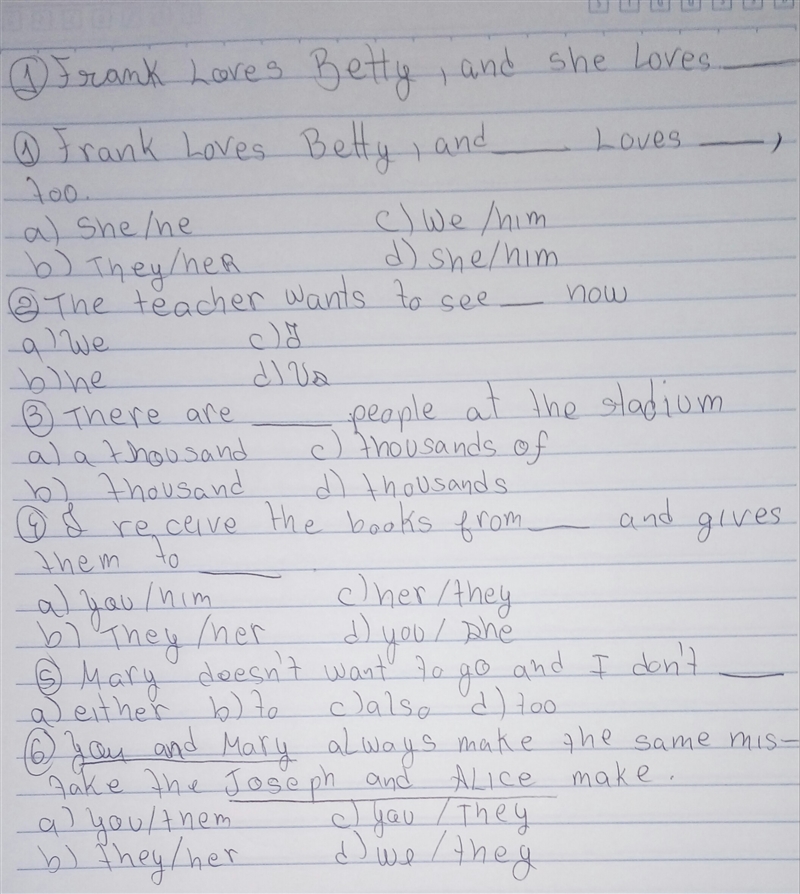 ① Frank Loves Betty, and she Loves ____
① Frank Loves Betty, and ____ Loves ____,
too.
a) She/he c) We/him
b) They/heR d) she/him
② The teacher wants to see ___ now
a) We c) I
b) he d) Us
③ There are ____ people at the stadium
a) a thousand c) thousands of
b) thousand d) thousands
④ I receive the books from ___ and gives
them to ____
a) you/him c) her/they
b) They/her d) you/she
⑤ Mary doesn't want to go and I don't ____
a) either b) to c) also d) too
⑥ you and Mary always make the same mis-
take the Joseph and ALice make.
a) you/them c) you/They
b) they/her d) we/they